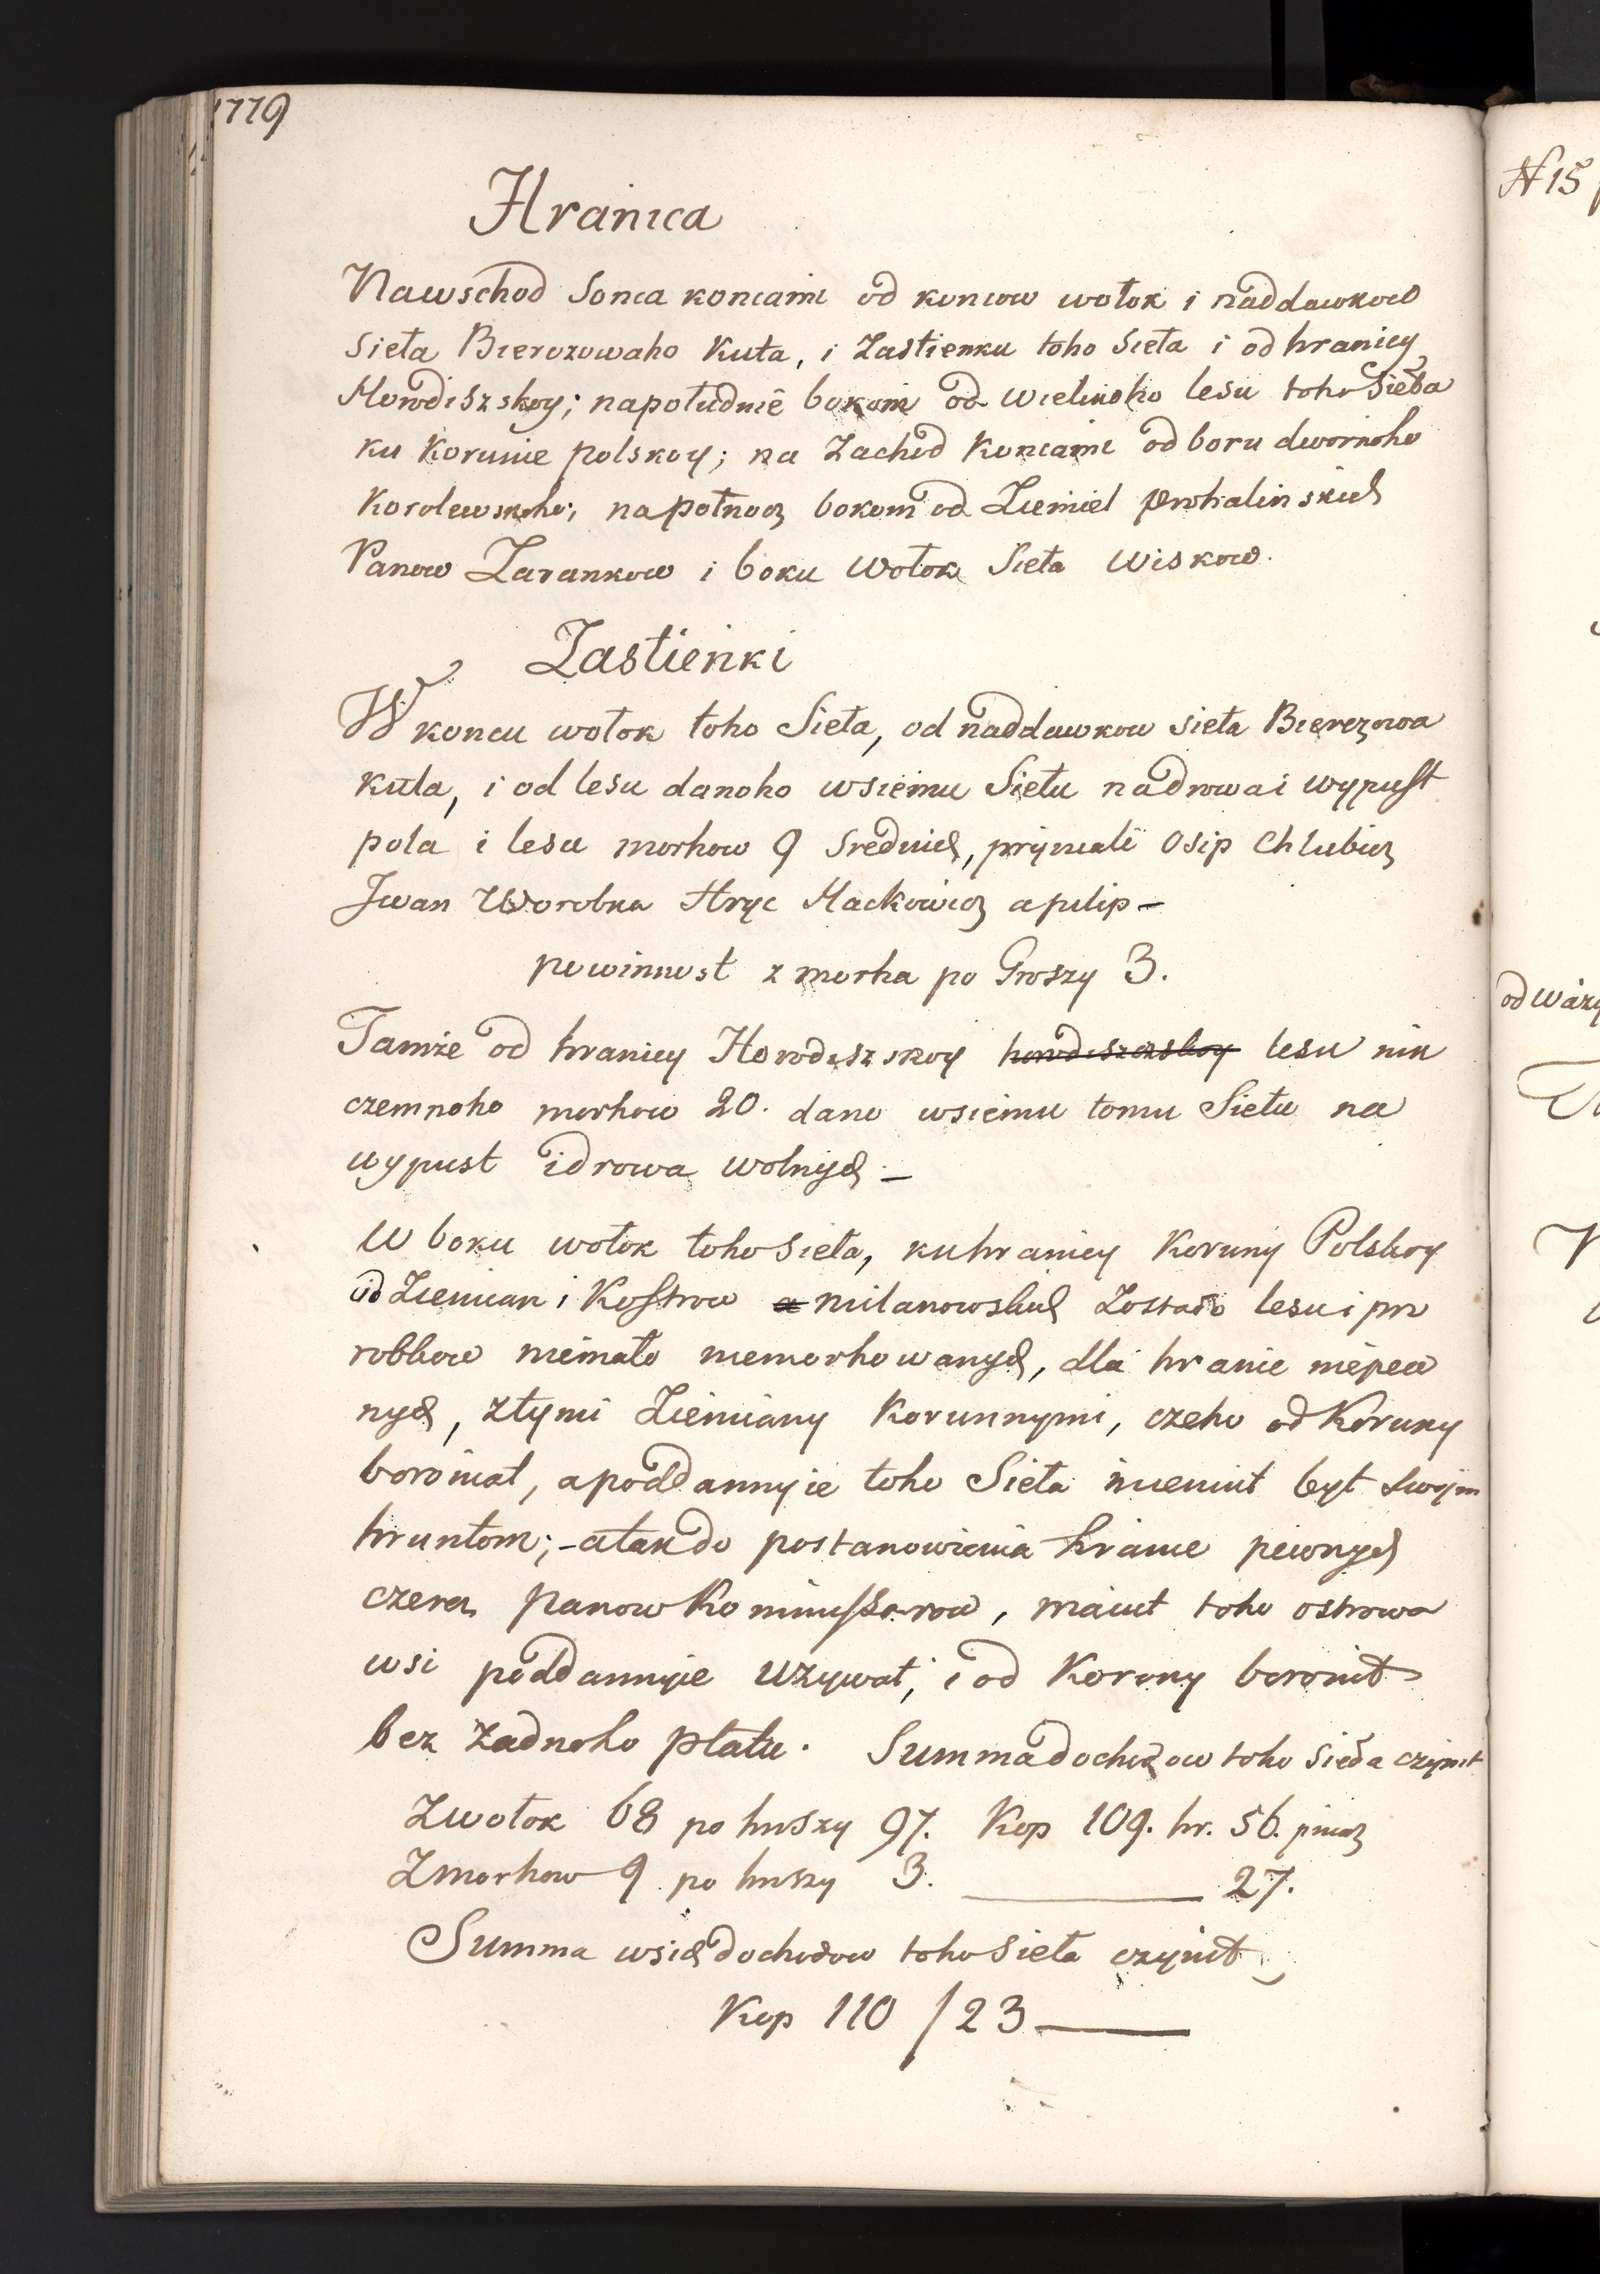 1779
Hranica
Nawschod Sonca koncami od koncow wołok i naddawkow
sieła Bierozowaho Kuta, i Zastienku toho Sieła i od hranicy
Horodiszskoy; napołudnie bokom od wielikoho lesu toho Sieła
ku Korunie polskoy; na Zachod Koncami od boru dwornoho
Korolewskoho; napołnocz bokom od Ziemiel Prohalinskich
Panow Zarankow i boku Wołok Sieła Wiskow.
Zastienki
W koncu wołok toho Sieła, od naddawkow sieła Bierezowa
kuta, i od lesu danoho wsiemu Siełu nadrowa i wypust
pola i lesu morhow 9 Srednich, prymali Osip Chlubicz
Iwan Worobka Hryc Mackowicz a pilip –
powinnost z morha po Groszy 3.
Tamże od hranicy Horodiszskoy horodiszczskoy lesu nik
czemnoho morhow 20. dano wsiemu tomu Siełu na
wypust i drowa wolnych –
W boku wołok toho Sieła, ku hranicy Koruny Polskoy
od Ziemian i Kostrow a milanowskich Zostało lesu i pro
robkow niemało niemorhowanych, dla hranic niepew
nych, ztymi Ziemiany Korunnymi, czeho od Koruny
boroniat, a poddannyie toho Sieła mieniut byt swoim
hruntom; – a tak do postanowienia hranic pewnych
czerez panow Kommissarow, maiut toho ostrowa
wsi poddannyie uzywat, i od Korony boronit
bez żadnoho płatu. Summa dochodow toho Sieła czynit
Zwołok 68 po hroszy 97. Kop 109. hr. 56. pinaz
Zmorhow 9 po hroszy 3. ——— 27.
Summa wsich dochodow toho Sieła czynit
Kop 110 / 23 ———
N 15
od waży